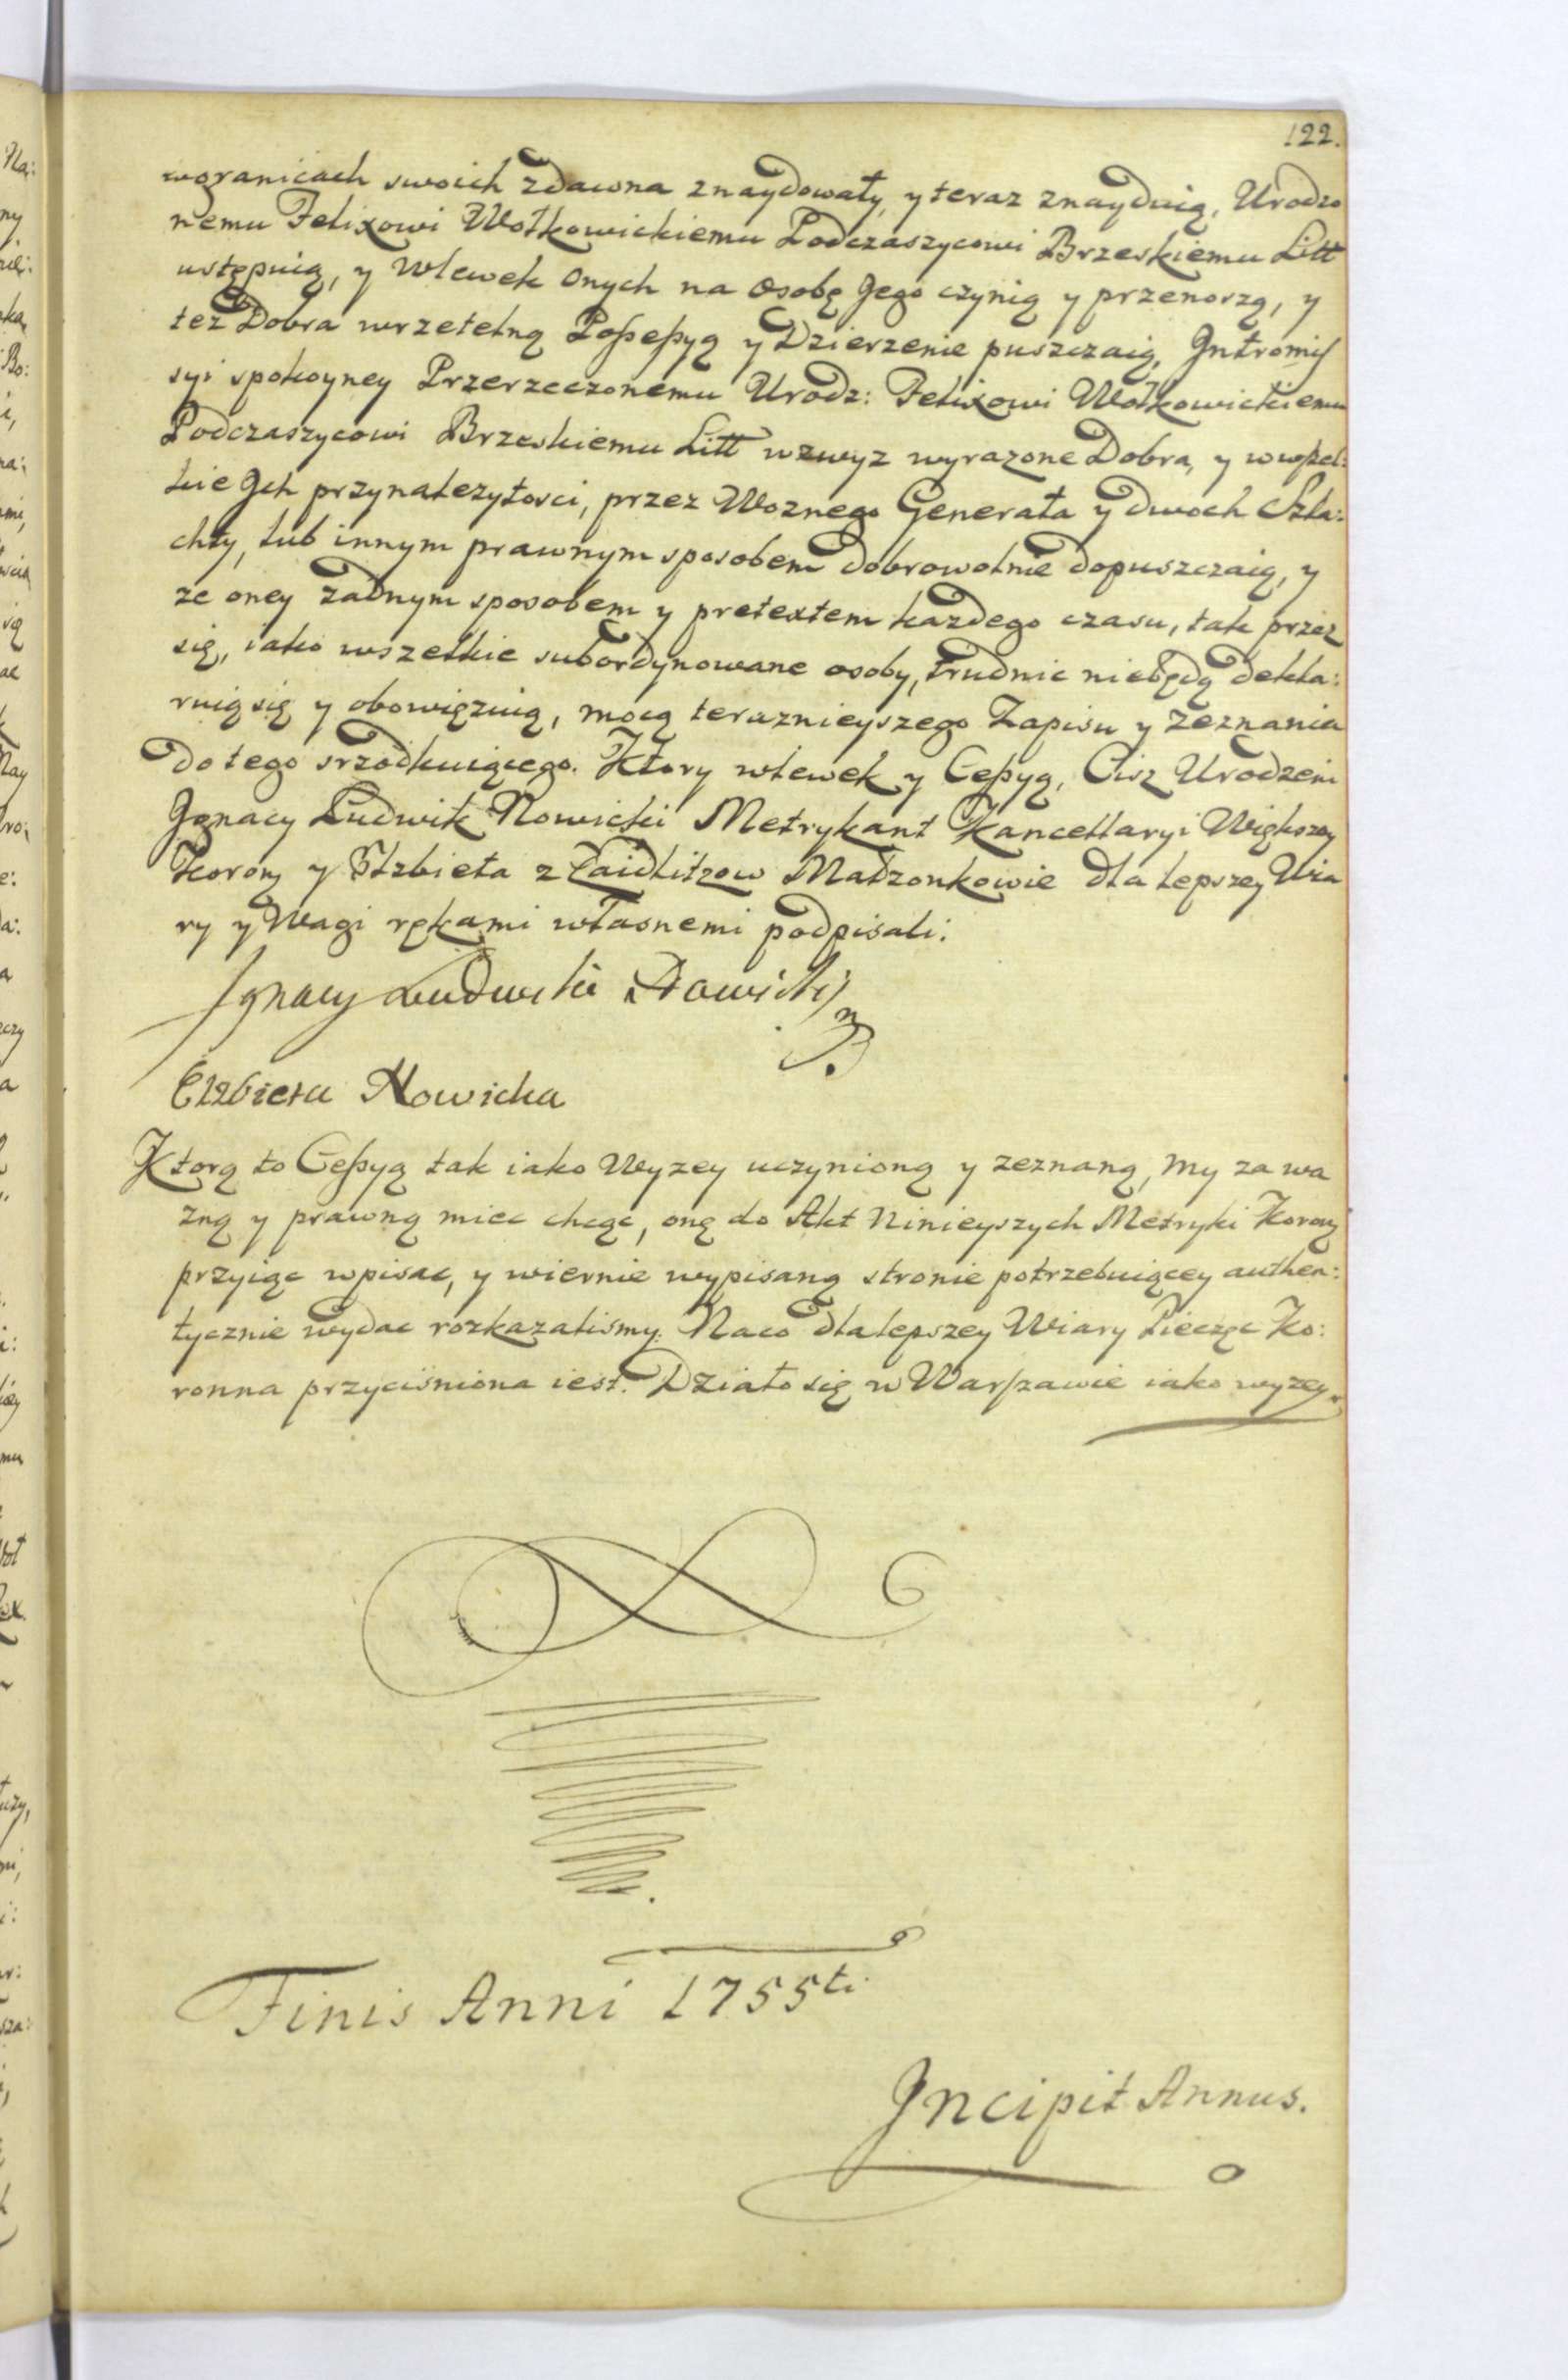 122.
wgranicach swoich zdawna znaydowały, y teraz znayduią, Urodzo
nemu Felixowi Wołkowickiemu Podczaszycowi Brzeskiemu Litt
ustępuią, y Wlewek onych na osobę Jego czynią y przenoszą, y
też Dobra wrzetelną Poſseſsyą y Dzierzenie puszczaią, Jntromiſ
syi spokoyney Przerzeczonemu Urodz: Felixowi Wołkowickiemu
Podczaszycowi Brzeskiemu Litt wzwyz wyrazone Dobra, y wwſzel:
kie Jch przynalezytosci, przez Woznego Generała y dwoch Szla:
chty, lub innym prawnym sposobem dobrowolnie dopuszczaią, y
ze oney zadnym sposobem y pretextem kazdego czasu, tak przez
się, iako wszelkie subordynowane osoby, trudnic niebędą dekla:
ruią się y obowięzuią, mocą teraznieyszego Zapisu y zeznania
do tego srzodkuiącego. Ktory wlewek y Ceſsyą, Ciz Urodzeni
Jgnacy Ludwik Nowicki Metrykant Kancellaryi Większey
Korony y Elzbieta z Zaidlitzow Małzonkowie dla lepszey Wia
ry y Wagi rękami własnemi podpisali:
Ignacy Ludwik Nowicki
Elzbieta Nowicka
Ktorą to Ceſsyą tak iako Wyzey uczynioną y zeznaną, my za wa
zną y prawną miec chcąc, onę do Akt Ninieyszych Metryki Korony
przyiąc wpisac, y wiernie wypisaną stronie potrzebuiącey authen:
tycznie wydac rozkazalismy. Naco dla lepszey Wiary Pieczęc Ko:
ronna przyciśniona iest. Działo się w Warſzawie iako wyzey.
Finis Anni 1755ti
Jncipit Annus.